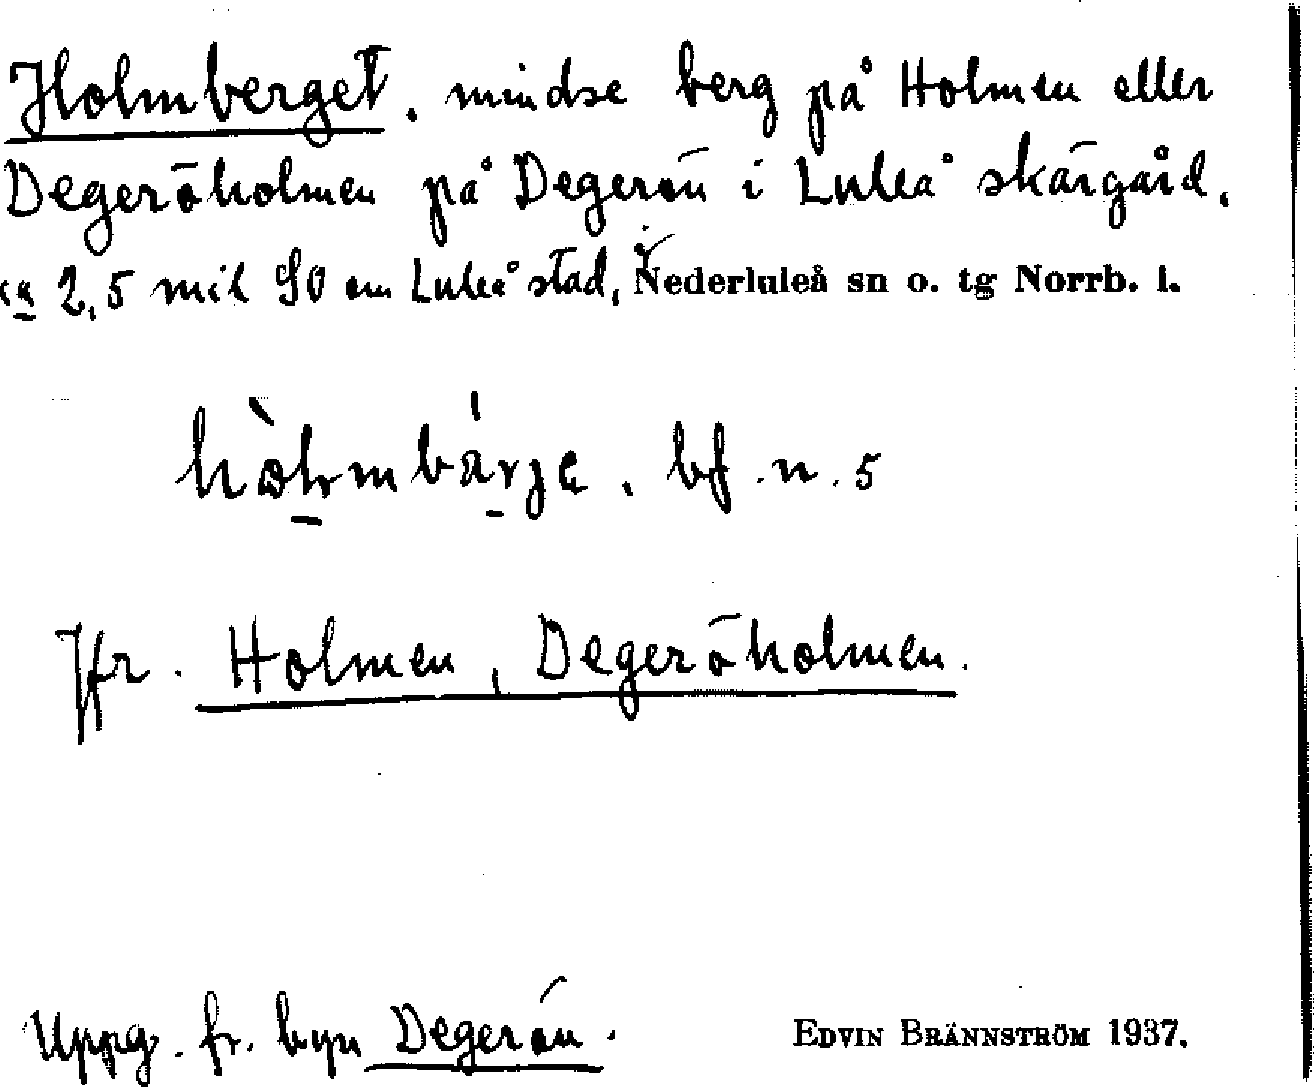 Holmberget, mindre berg på Holmen eller
Degeröholmen på Degerön i Luleå skärgård,
ca 2,5 mil SO om Luleå stad, i Nederluleå sn o. tg Norrb. l.
bf. n. 5
Jfr. Holmen, Degeröholmen.
Uppg. fr. byn Degerön.
EDVIN BRÄNNSTRÖM 1937.